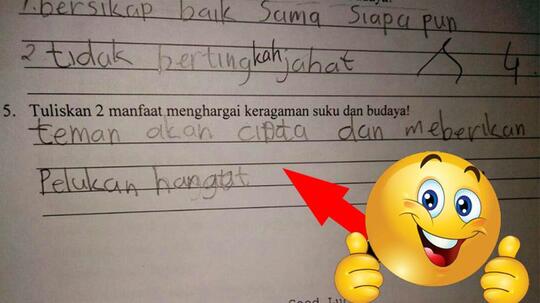 1. bersikap baik Sama Siapa pun
2 tidak bertingkah jahat 4
5. Tuliskan 2 manfaat menghargai keragaman suku dan budaya!
teman akan cinta dan meberikan
Pelukan hangat
Good